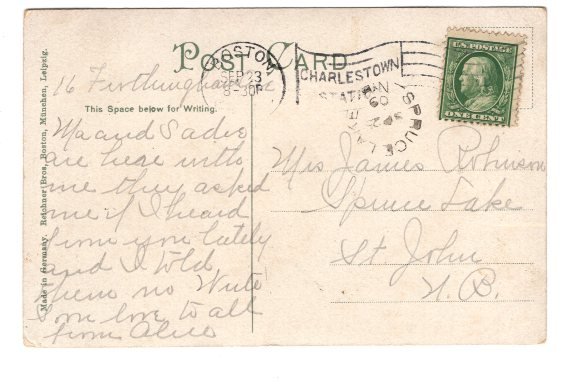 POST CARD
BOSTON
SEP 23
8-30P
CHARLESTOWN
STATION
SPRUCE LAKE
SP 2
09
N.B.
U.S. POSTAGE
ONE CENT
This Space below for Writing.
Made in Germany. Reichner Bros., Boston, München, Leipzig.
16
Ma and Sadie
are hear with
me they asked
me if I heard
from you lately
and I told
them no Write
soon love to all
from Alice
Mrs James Robinson
Spruce Lake
St John
N. B.